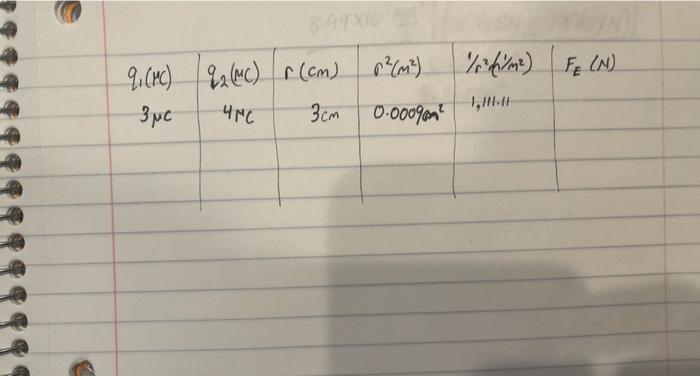 8.99x10
q₁(μC) q₂(μC) r(cm) r²(m²) 1/r²(1/m²) FE (N)
3μC 4μC 3cm 0.0009m² 1,111.11